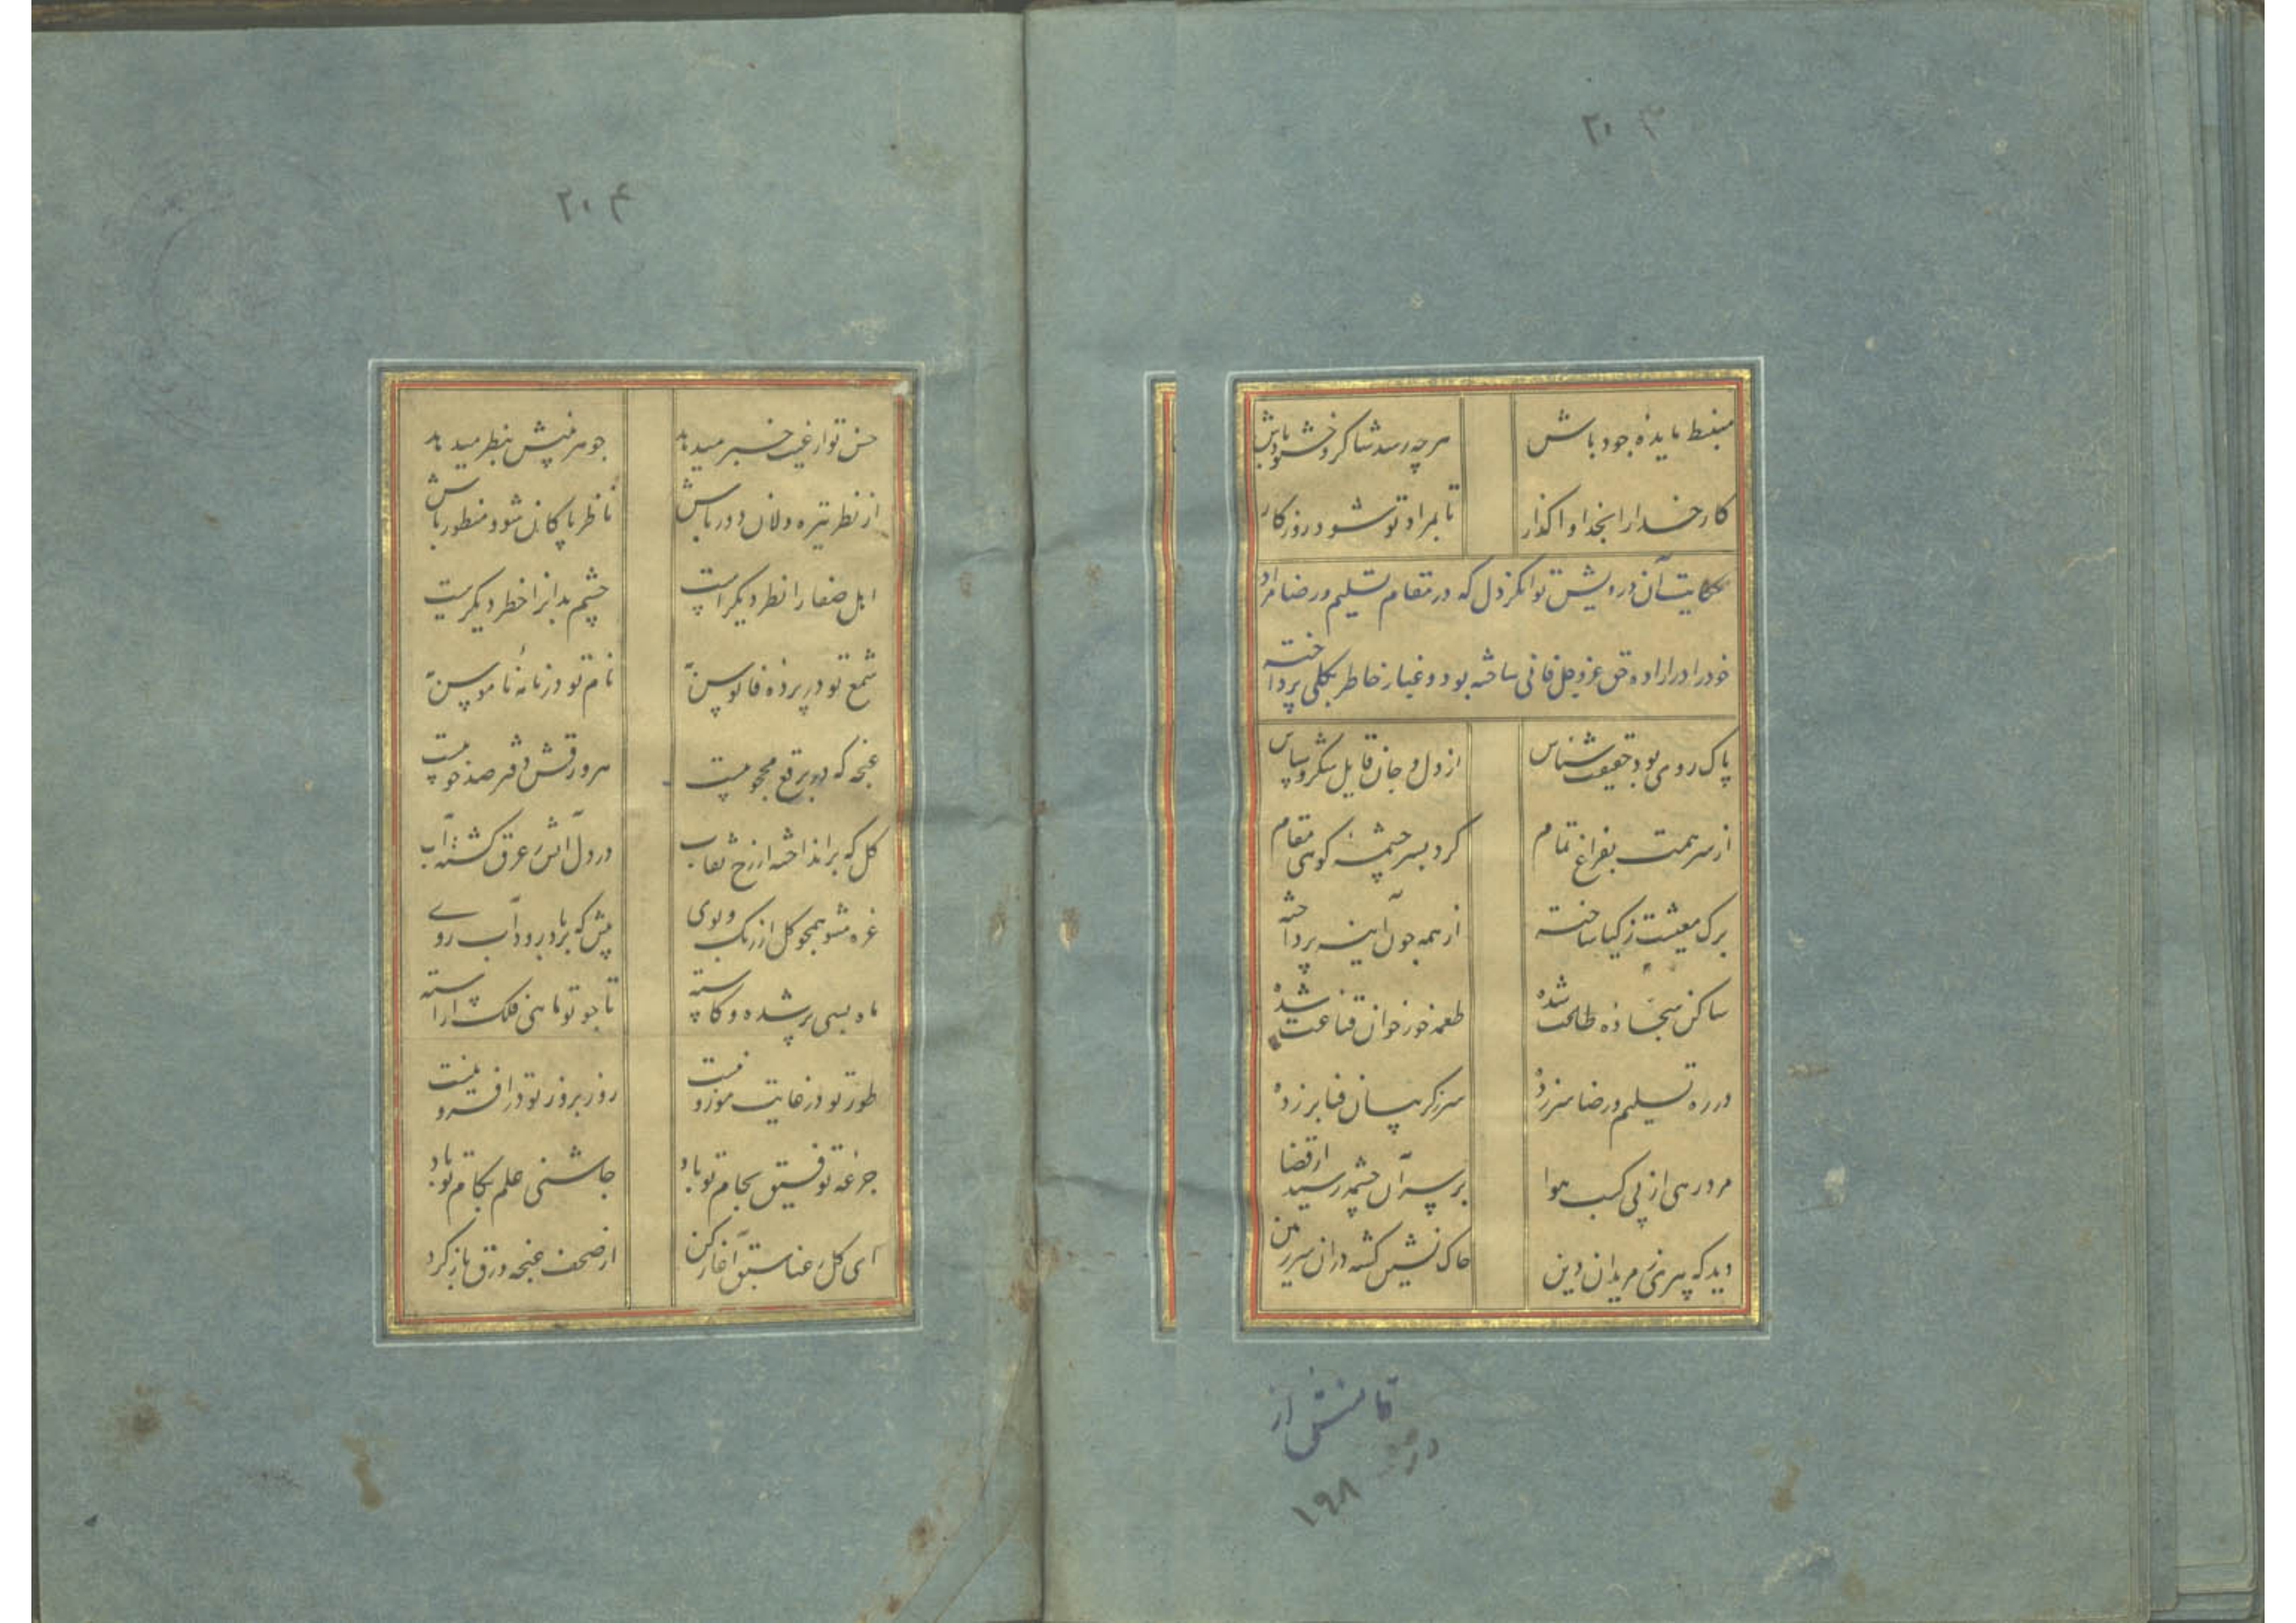 ۲۰۳
منبسط مایدهٔ جود باش هر چه رسد شاکر و خشنود باش
کار خدا را بخدا واگذار تا بمراد تو شود روزگار
حکایت آن درویش توانگر دل که در مقام تسلیم و رضا مراد
خود را در ارادهٔ حق عز و جل فانی ساخته بود و غبار خاطر بکلی پرداخته
پاک روی بود حقیقت شناس از دل و جان قایل شکر و سپاس
از سر همت بفراغ تمام کرد بسر چشمهٔ کوهی مقام
برک معیشت ز کیا ساخته از همه چون آینه پرداخته
ساکن سجاده طاعت شده طعمه خور خوان قناعت شده
در ره تسلیم و رضا سر زده سر ز کریبان فنا بر زده
مرد رهی از پی کسب هوا بر سر آن چشمه رسید از قضا
دید که پیری ز مریدان دین خاک نشین کشته در ان سرزمین
تا منشی از
در
۱۹۸
۲۰۴
حسن تو از غیب خبر میدهد جوهر بینش بنظر میدهد
از نظر تیره دلان دور باش ناظر پاکان شو و منظور باش
اهل صفا را نظر دیکر است چشم بدانرا خطر دیکر است
شمع تو در پردهٔ فانوس به نام تو در خانهٔ ناموس به
غنچه که در برقع محجوبیست هر ورقش دفتر صد خوبیست
کل که برانداخته از رخ نقاب در دل آتش ز عرق کشته آب
غره مشو همچو کل از رنک و بوی بیش که بر باد رود آب روی
ماه بسی پر شده و کاسته تا چو تو ماهی فلک آراسته
طور تو در غایت موزونیست روز بروز تو در افزونیست
جرعهٔ توفیق بجام تو باد چاشنی علم بکام تو باد
ای کل رعنا سبق آغاز کن از صحف غنچه ورق باز کرد